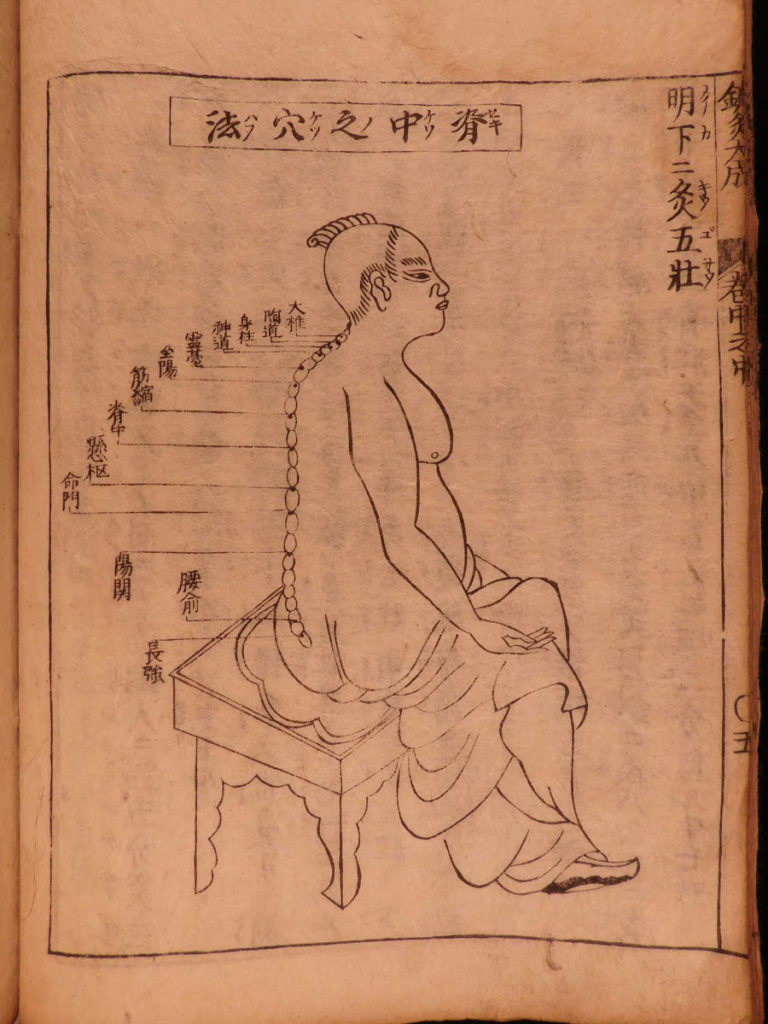 鍼灸大成
卷中之中
〇五
明下ニ灸五壯
脊中之穴法
大椎
陶道
身柱
神道
靈臺
至陽
筋縮
脊中
懸枢
命門
陽関
腰俞
長強